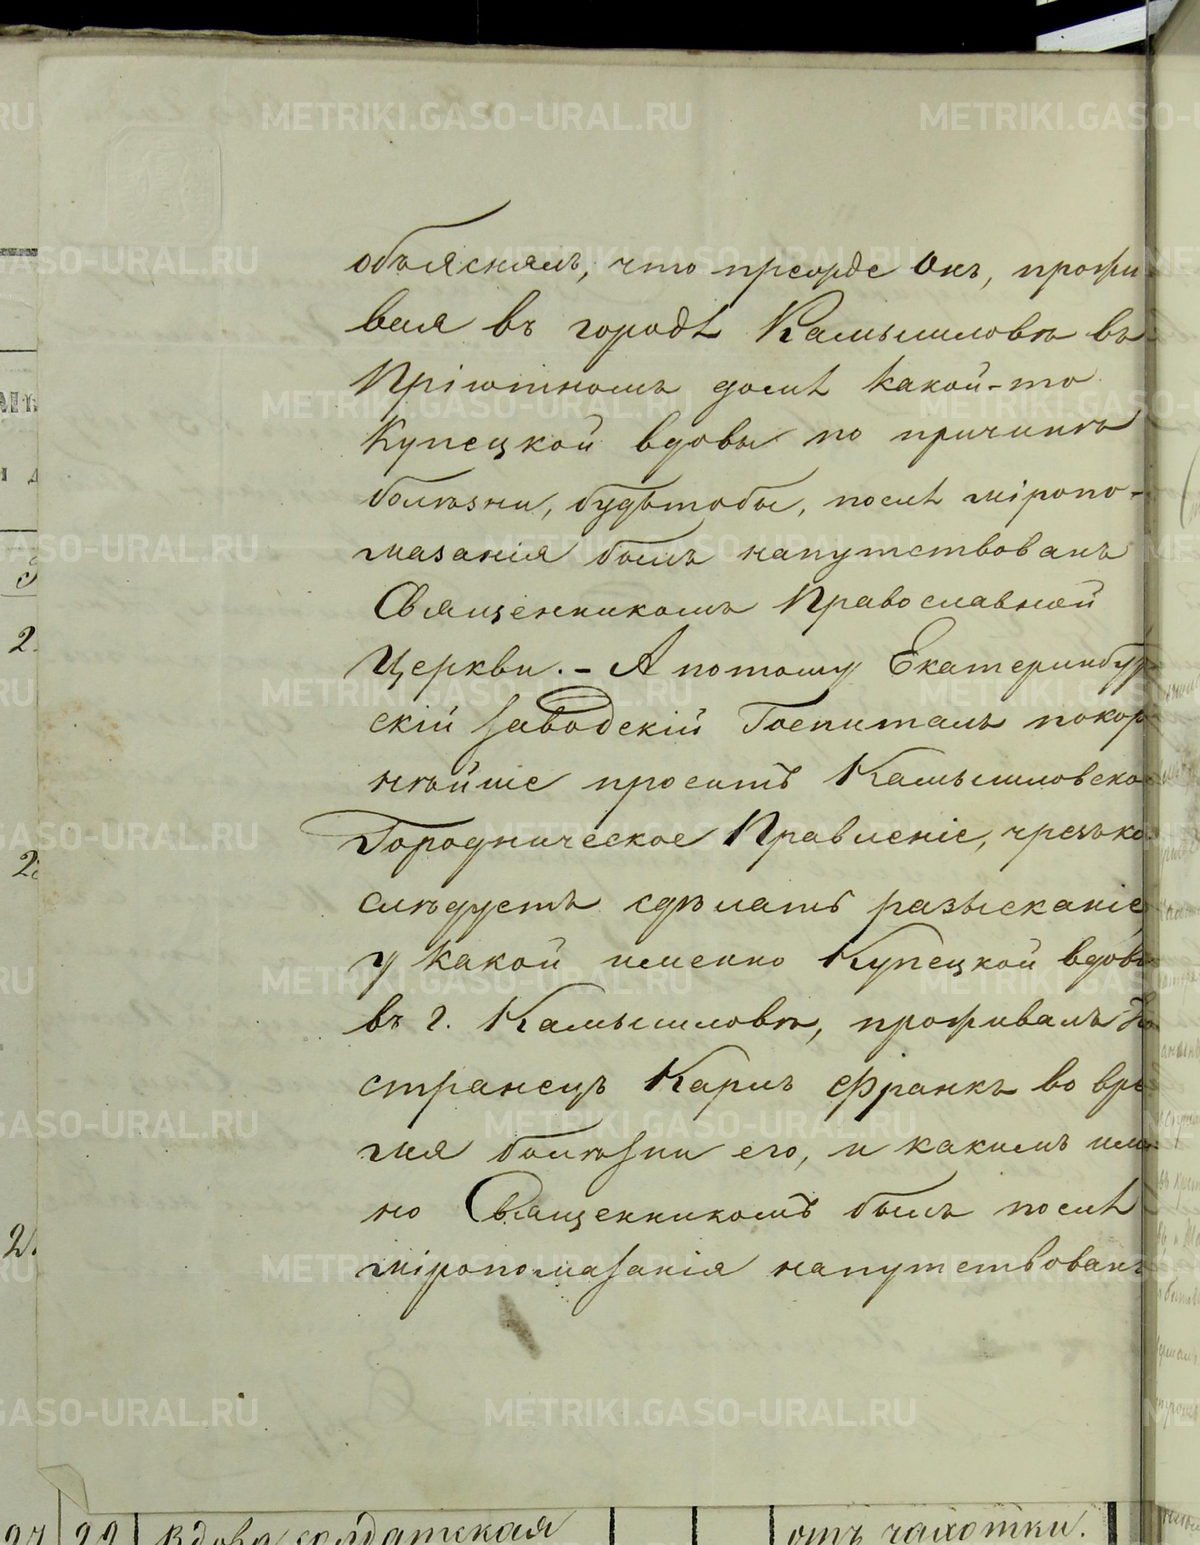 объяснялъ, что прежде Онъ, прожи
вая въ городѣ Камышловѣ въ
Пріютномъ домѣ какой-то
Купецкой вдовы по причинѣ
болѣзни, будьтобы, послѣ мѵропо-
мазанія былъ напутствованъ
Священникомъ Православной
Церкви. - А потому Екатеринбур
скій Заводскій Госпиталь покор
нѣйше проситъ Камышловско
Городническое Правленіе, чрезъ ко
слѣдуетъ сдѣлать разысканіе
у какой именно Купецкой вдов
въ г. Камышловѣ, проживалъ
странецъ Карлъ Франкъ во вре
мя болѣзни его, и какимъ имен
но Священникомъ былъ послѣ
мѵропомазанія напутствованъ
Вдова солдатская
отъ чахотки.
METRIKI.GASO-URAL.RU